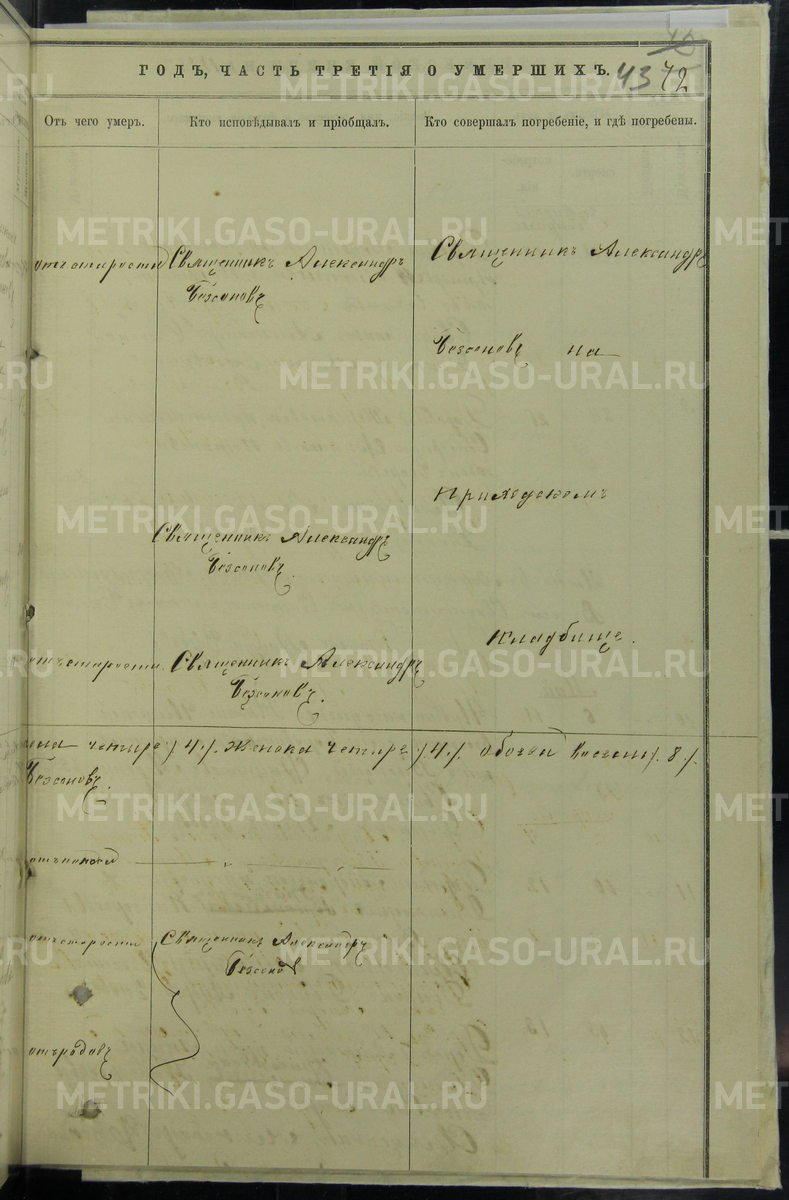 ГОДЪ, ЧАСТЬ ТРЕТІЯ О УМЕРШИХЪ. 43 72
Отъ чего умеръ. Кто исповѣдывалъ и пріобщалъ. Кто совершалъ погребеніе, и гдѣ погребены.
отъ старости Священникъ Александръ
Бѣзсоновъ
Священникъ Александръ
Бѣзсоновъ на
приходскомъ
кладбище.
Священникъ Александръ
Бѣзсоновъ.
отъ старости. Священникъ Александръ
Бѣзсоновъ.
четыре /4/. женска четыре /4/. обоего восемь /8/.
Бѣзсоновъ.
отъ поноса
отъ старости Священникъ Александръ
Бѣзсонов
отъ родовъ
METRIKI.GASO-URAL.RU